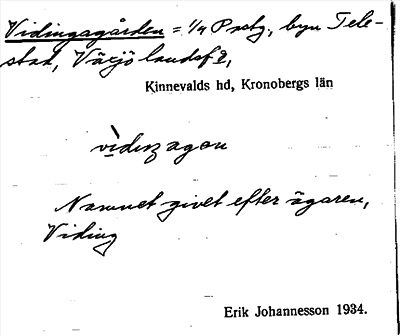 Vidingagården = 1/4 Prstg, byn Tele-
stad, Växjö landsf,
Kinnevalds hd, Kronobergs län
Namnet givet efter ägaren,
Viding
Erik Johannesson 1934.